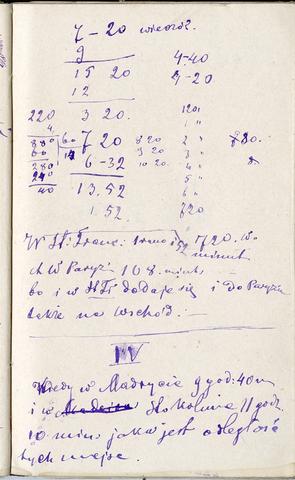 7 - 20 wieczór.
9
4-40
15 20
7-20
12
220 3 20. 12 01
4. 1 "
880 60 7 20 8 20 2 " 80.
60 14 6-32 9 20 3 "
280 10 20. 4 " 8
240 5 "
40 13.52 6 "
1.52 7 20
W St: Franc: 720. w
minut
ch w Paryżu 1 08. minut.
bo i w St Fr dodaje się i do Paryża
także na wschód. -
IV
Kiedy w Madrycie 9 god: 40 m
i w Stokolmie 11 godz.
10 minut jaka jest odległość
tych miejsc.